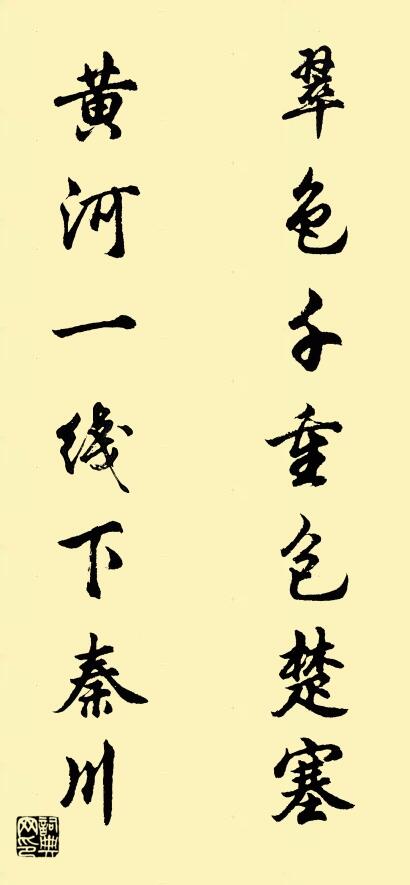 翠色千重包楚塞
黄河一线下秦川
詞典网印